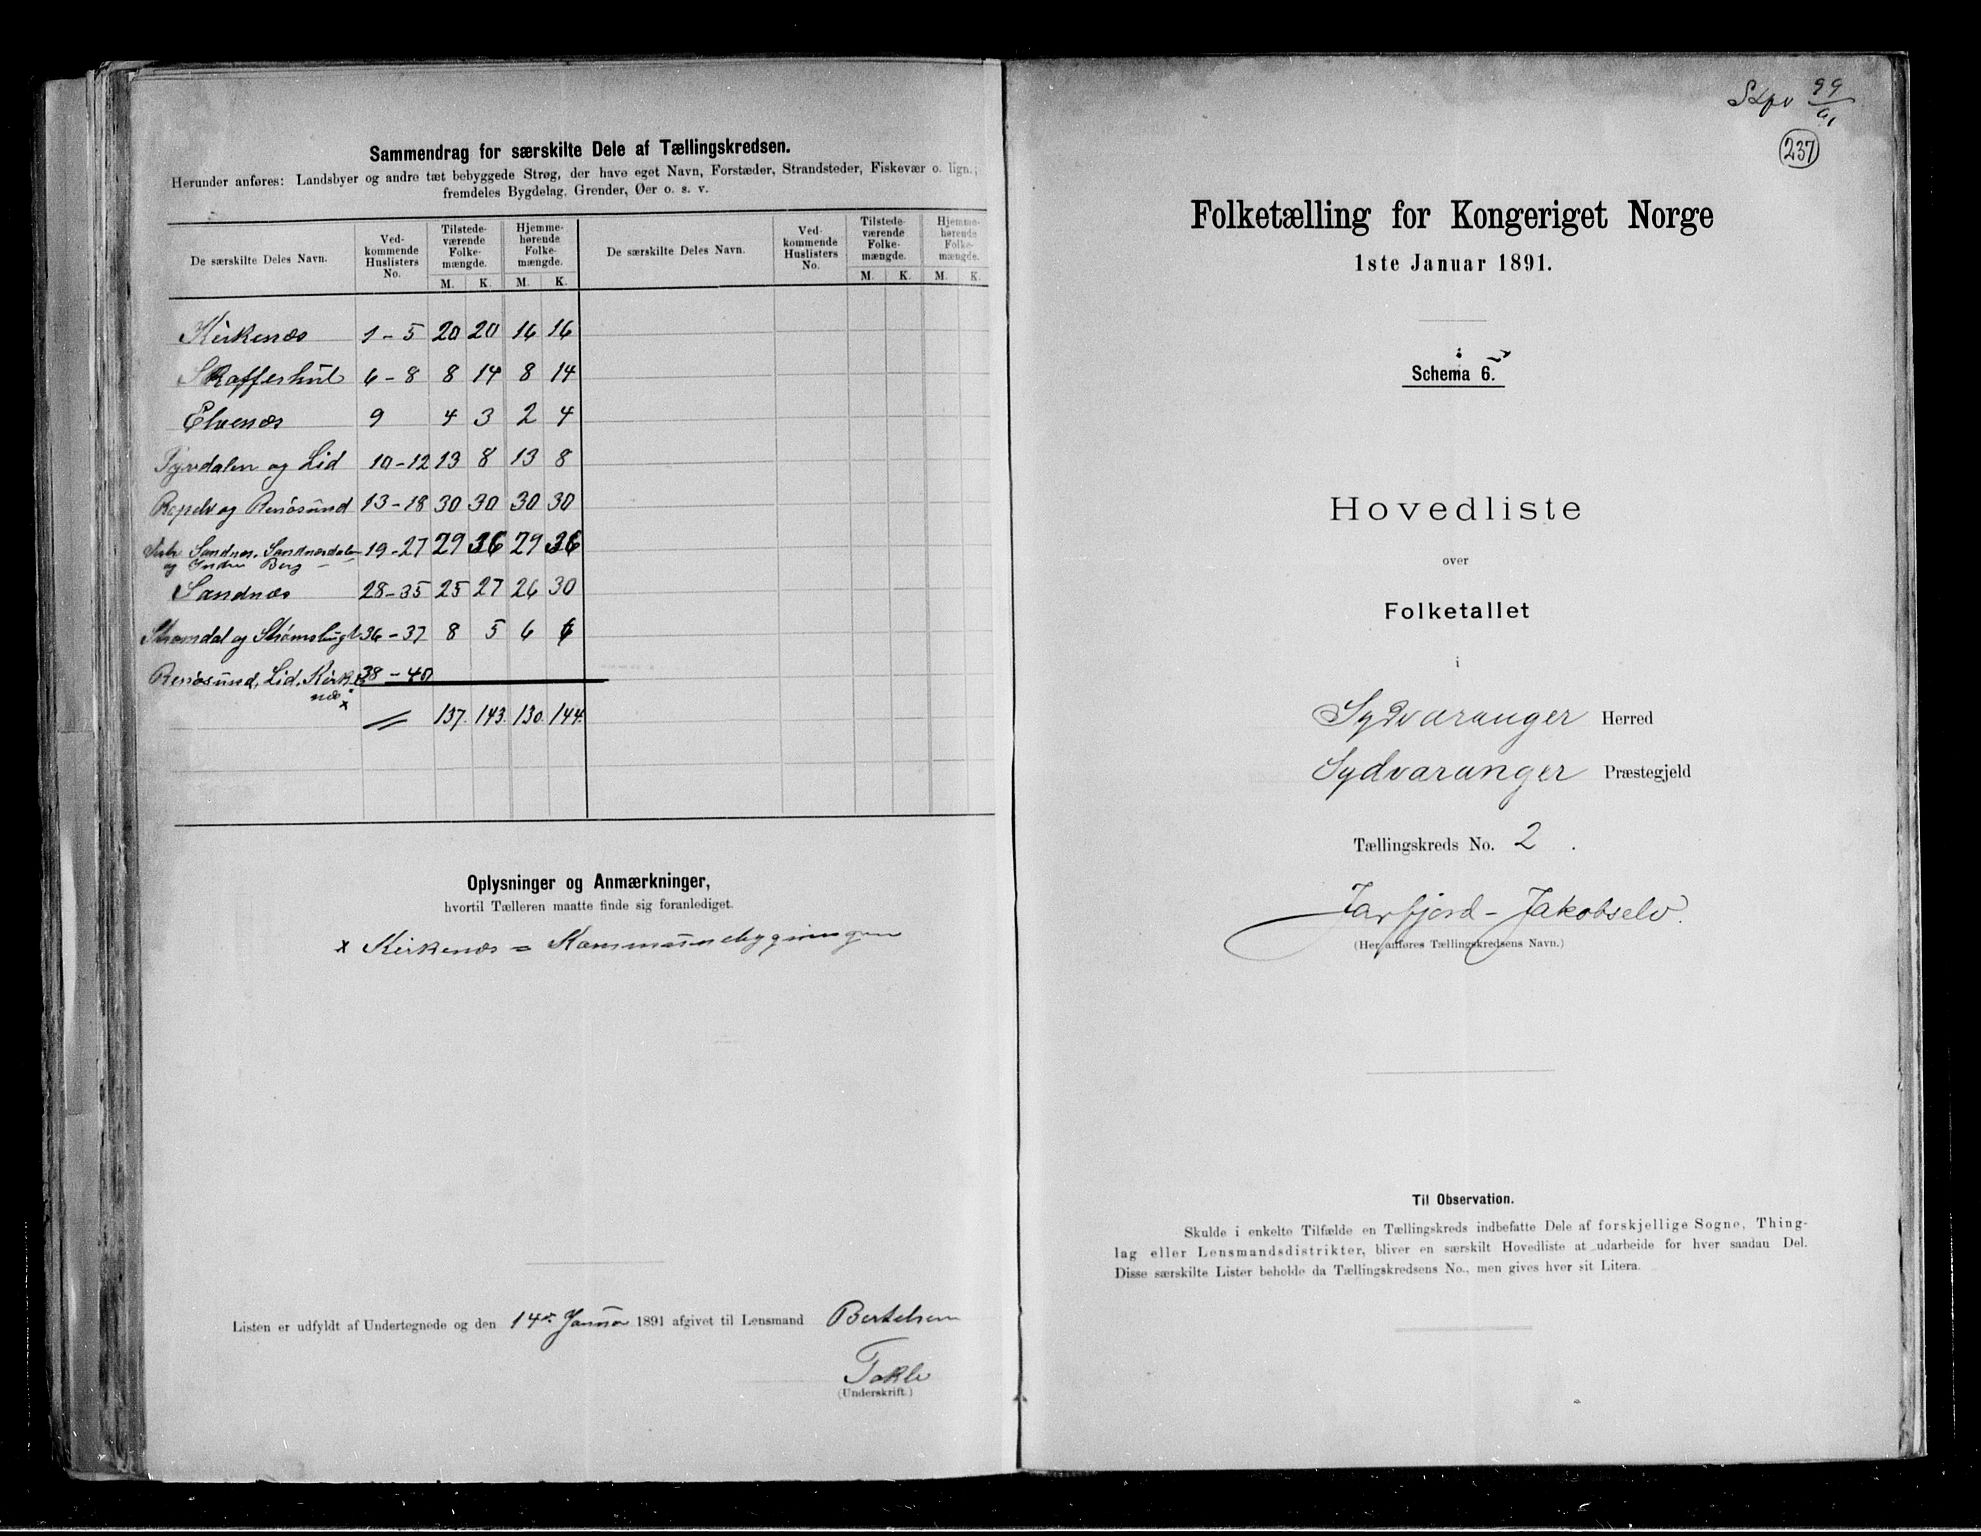 Sammendrag for særskilte Dele af Tællingskredsen.
Herunder anføres: Landsbyer og andre tæt bebyggede Strøg, der have eget Navn, Forstæder, Strandsteder, Fiskevær o. lign.;
fremdeles Bygdelag, Grender, Øer o. s. v.
De særskilte Deles Navn. Ved-kommende Huslisters No. Tilstede-værende Folke-mængde. M. K. Hjemme-hørende Folke-mængde. M. K. De særskilte Deles Navn. Ved-kommende Huslisters No. Tilstede-værende Folke-mængde. M. K. Hjemme-hørende Folke-mængde. M. K.
Kirkenæs 1-5 20 20 16 16
Skafferhul 6-8 8 14 8 14
Elvenæs 9 4 3 2 4
og Lid 10-12 13 8 13 8
Ropelv og Renøsund 13-18 30 30 30 30
Sandnæs, Sandnæsdalen 19-27 29 36 29 36
og Indre Berg
Sandnæs 28-35 25 27 26 30
Strømdal og Strømsbugt 36-37 8 5 6 6
Renøsund, Lid, Kirke 38-40
næs x
137. 143. 130. 144.
Oplysninger og Anmærkninger,
hvortil Tælleren maatte finde sig foranlediget.
x Kirkenæs = Kommunebygningen
Listen er udfyldt af Undertegnede og den 14de Januar 1891 afgivet til Lensmand Bertelsen
Takle
(Underskrift.)
99
91
237
Folketælling for Kongeriget Norge
1ste Januar 1891.
Schema 6.
Hovedliste
over
Folketallet
i
Sydvaranger Herred
Sydvaranger Præstegjeld
Tællingskreds No. 2.
Jarfjord - Jakobselv.
(Her anføres Tællingskredsens Navn.)
Til Observation.
Skulde i enkelte Tilfælde en Tællingskreds indbefatte Dele af forskjellige Sogne, Thing-
lag eller Lensmandsdistrikter, bliver en særskilt Hovedliste at udarbeide for hver saadan Del.
Disse særskilte Lister beholde da Tællingskredsens No., men gives hver sit Litera.